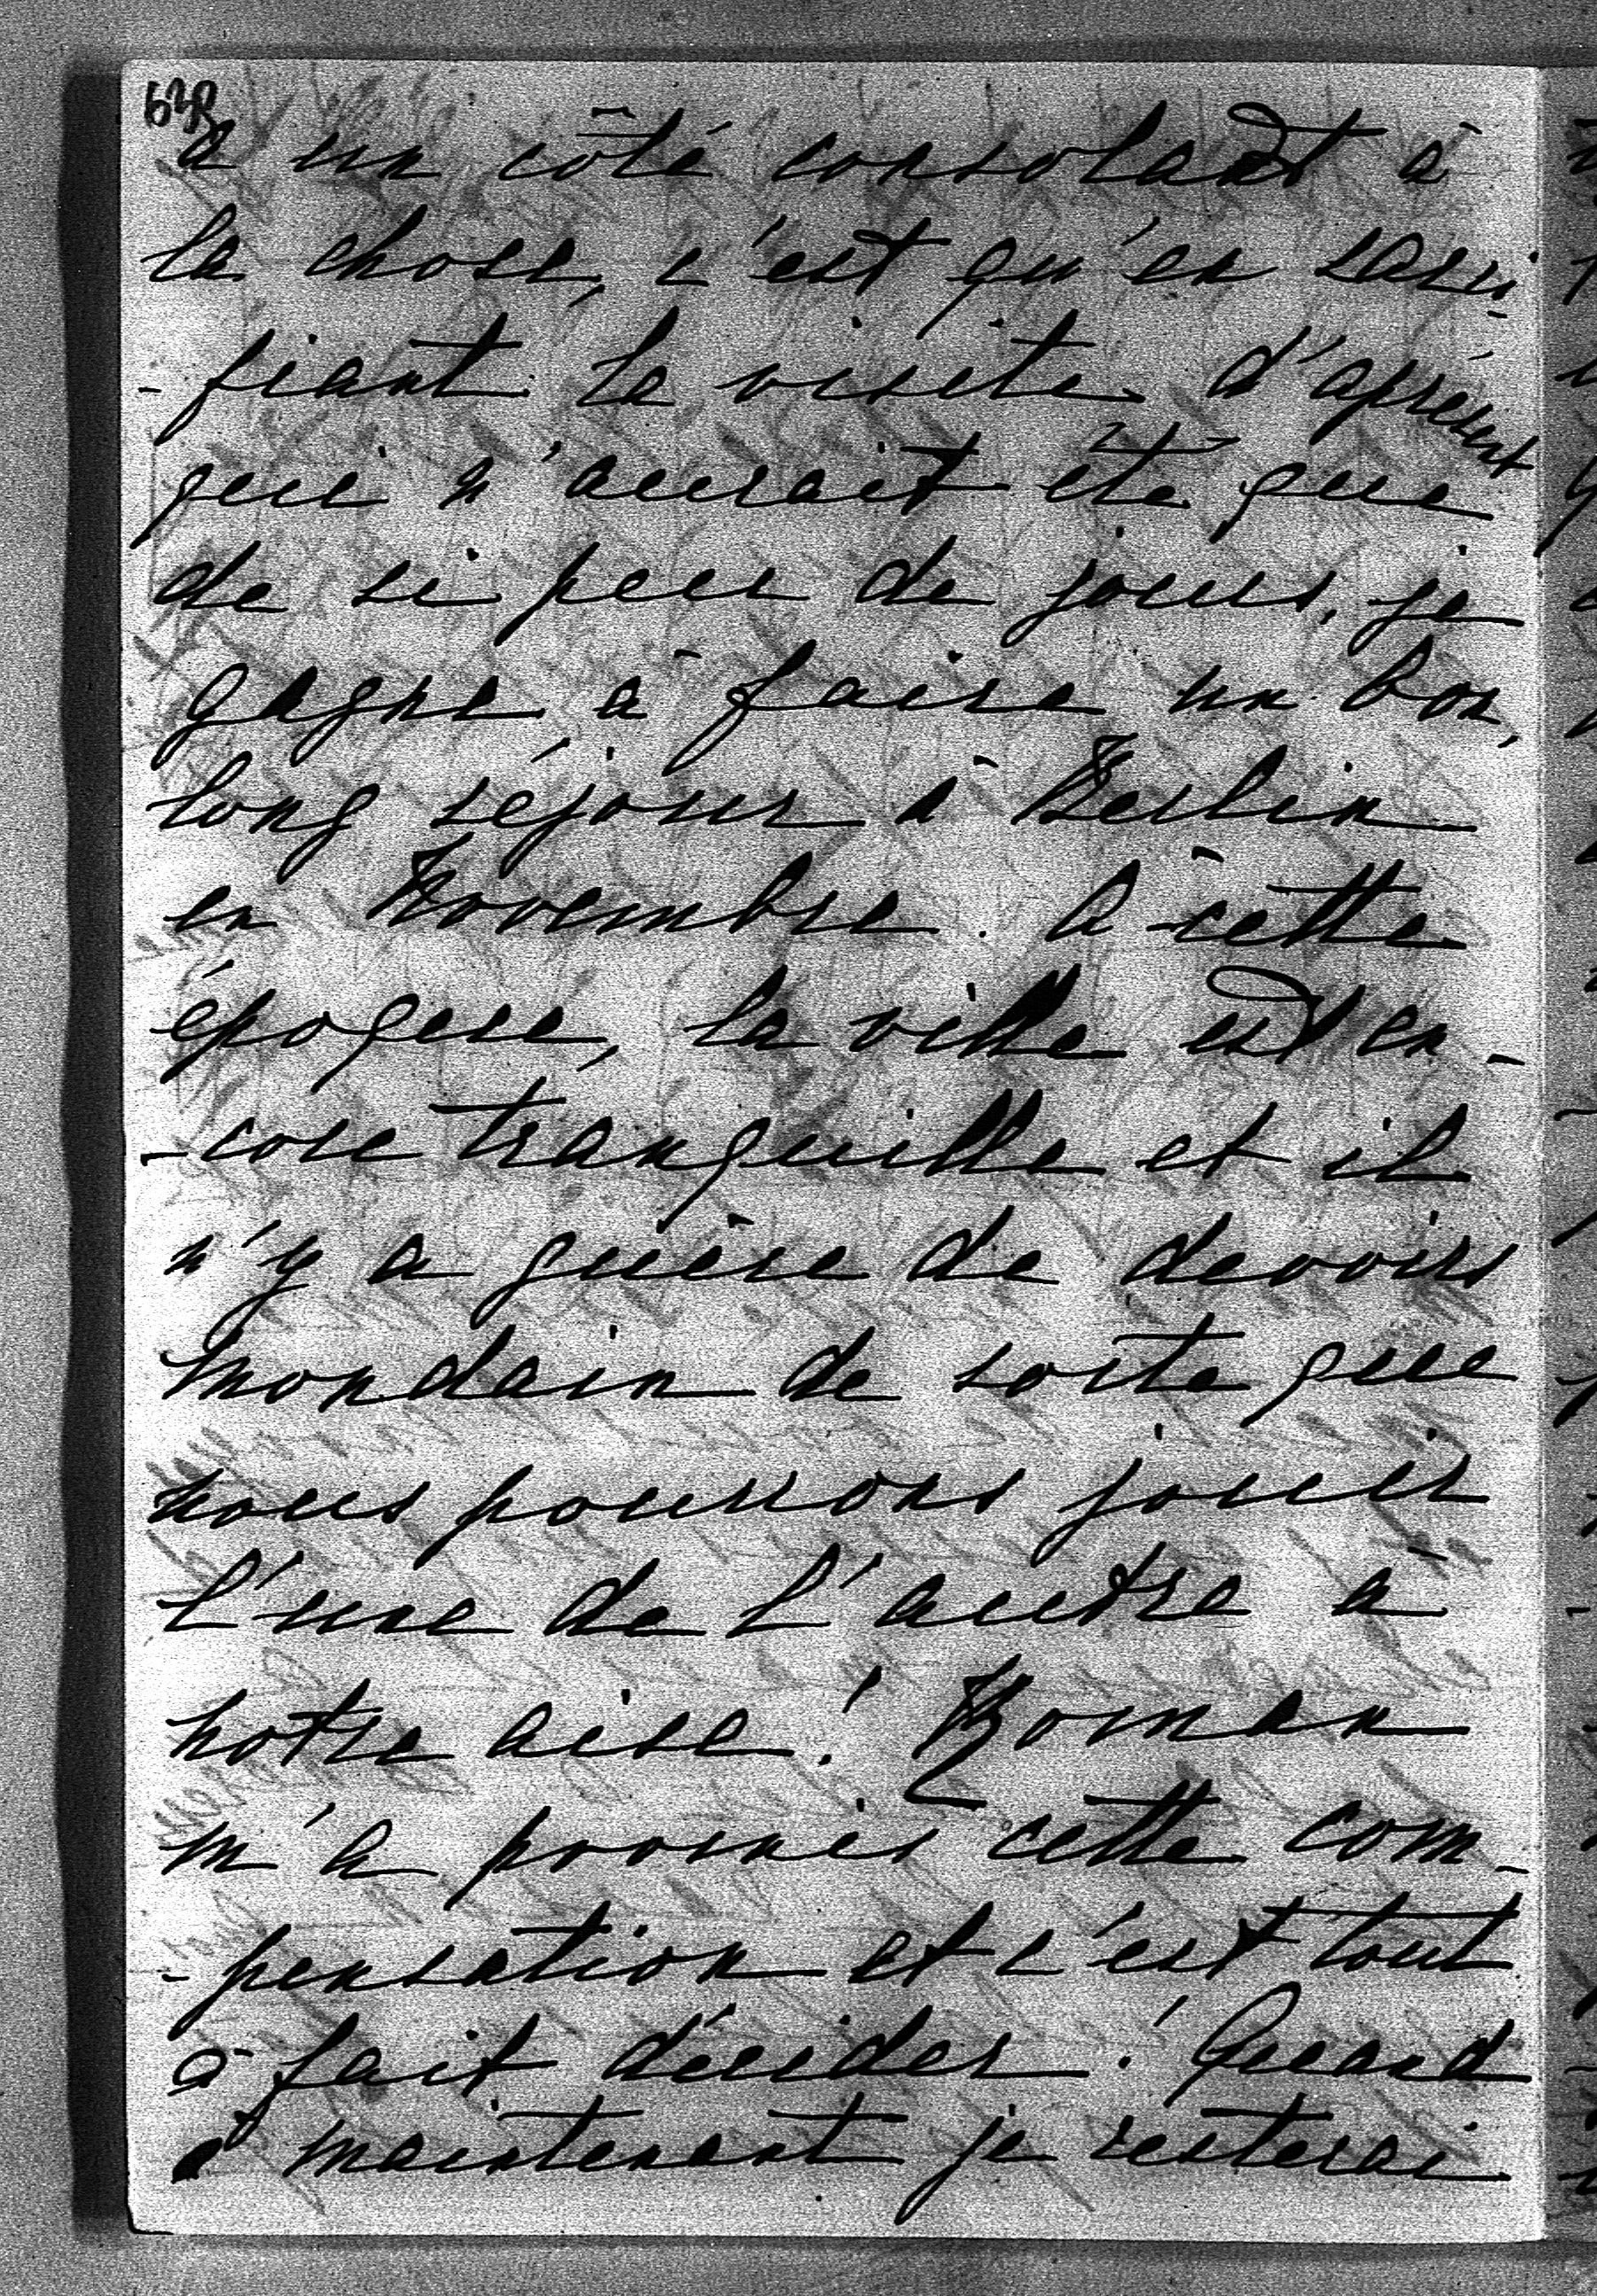 638
a un côté consolant à
la chose, c'est qu'en sacri-
-fiant la visite d'àprésent
qui n'aurait été que
de si peu de jours, je
gagne à faire un bon,
long séjour à Berlin
en Novembre. A cette
époque, la ville est en-
-core tranquille et il
n'y a guère de devoirs
mondain de sorte que
nous pourrons jouir
l'une de l'autre à
notre aise! Roman
m'a promis cette com-
-pensation et c'est tout
à fait décider! Quand
à maintenant je resterai